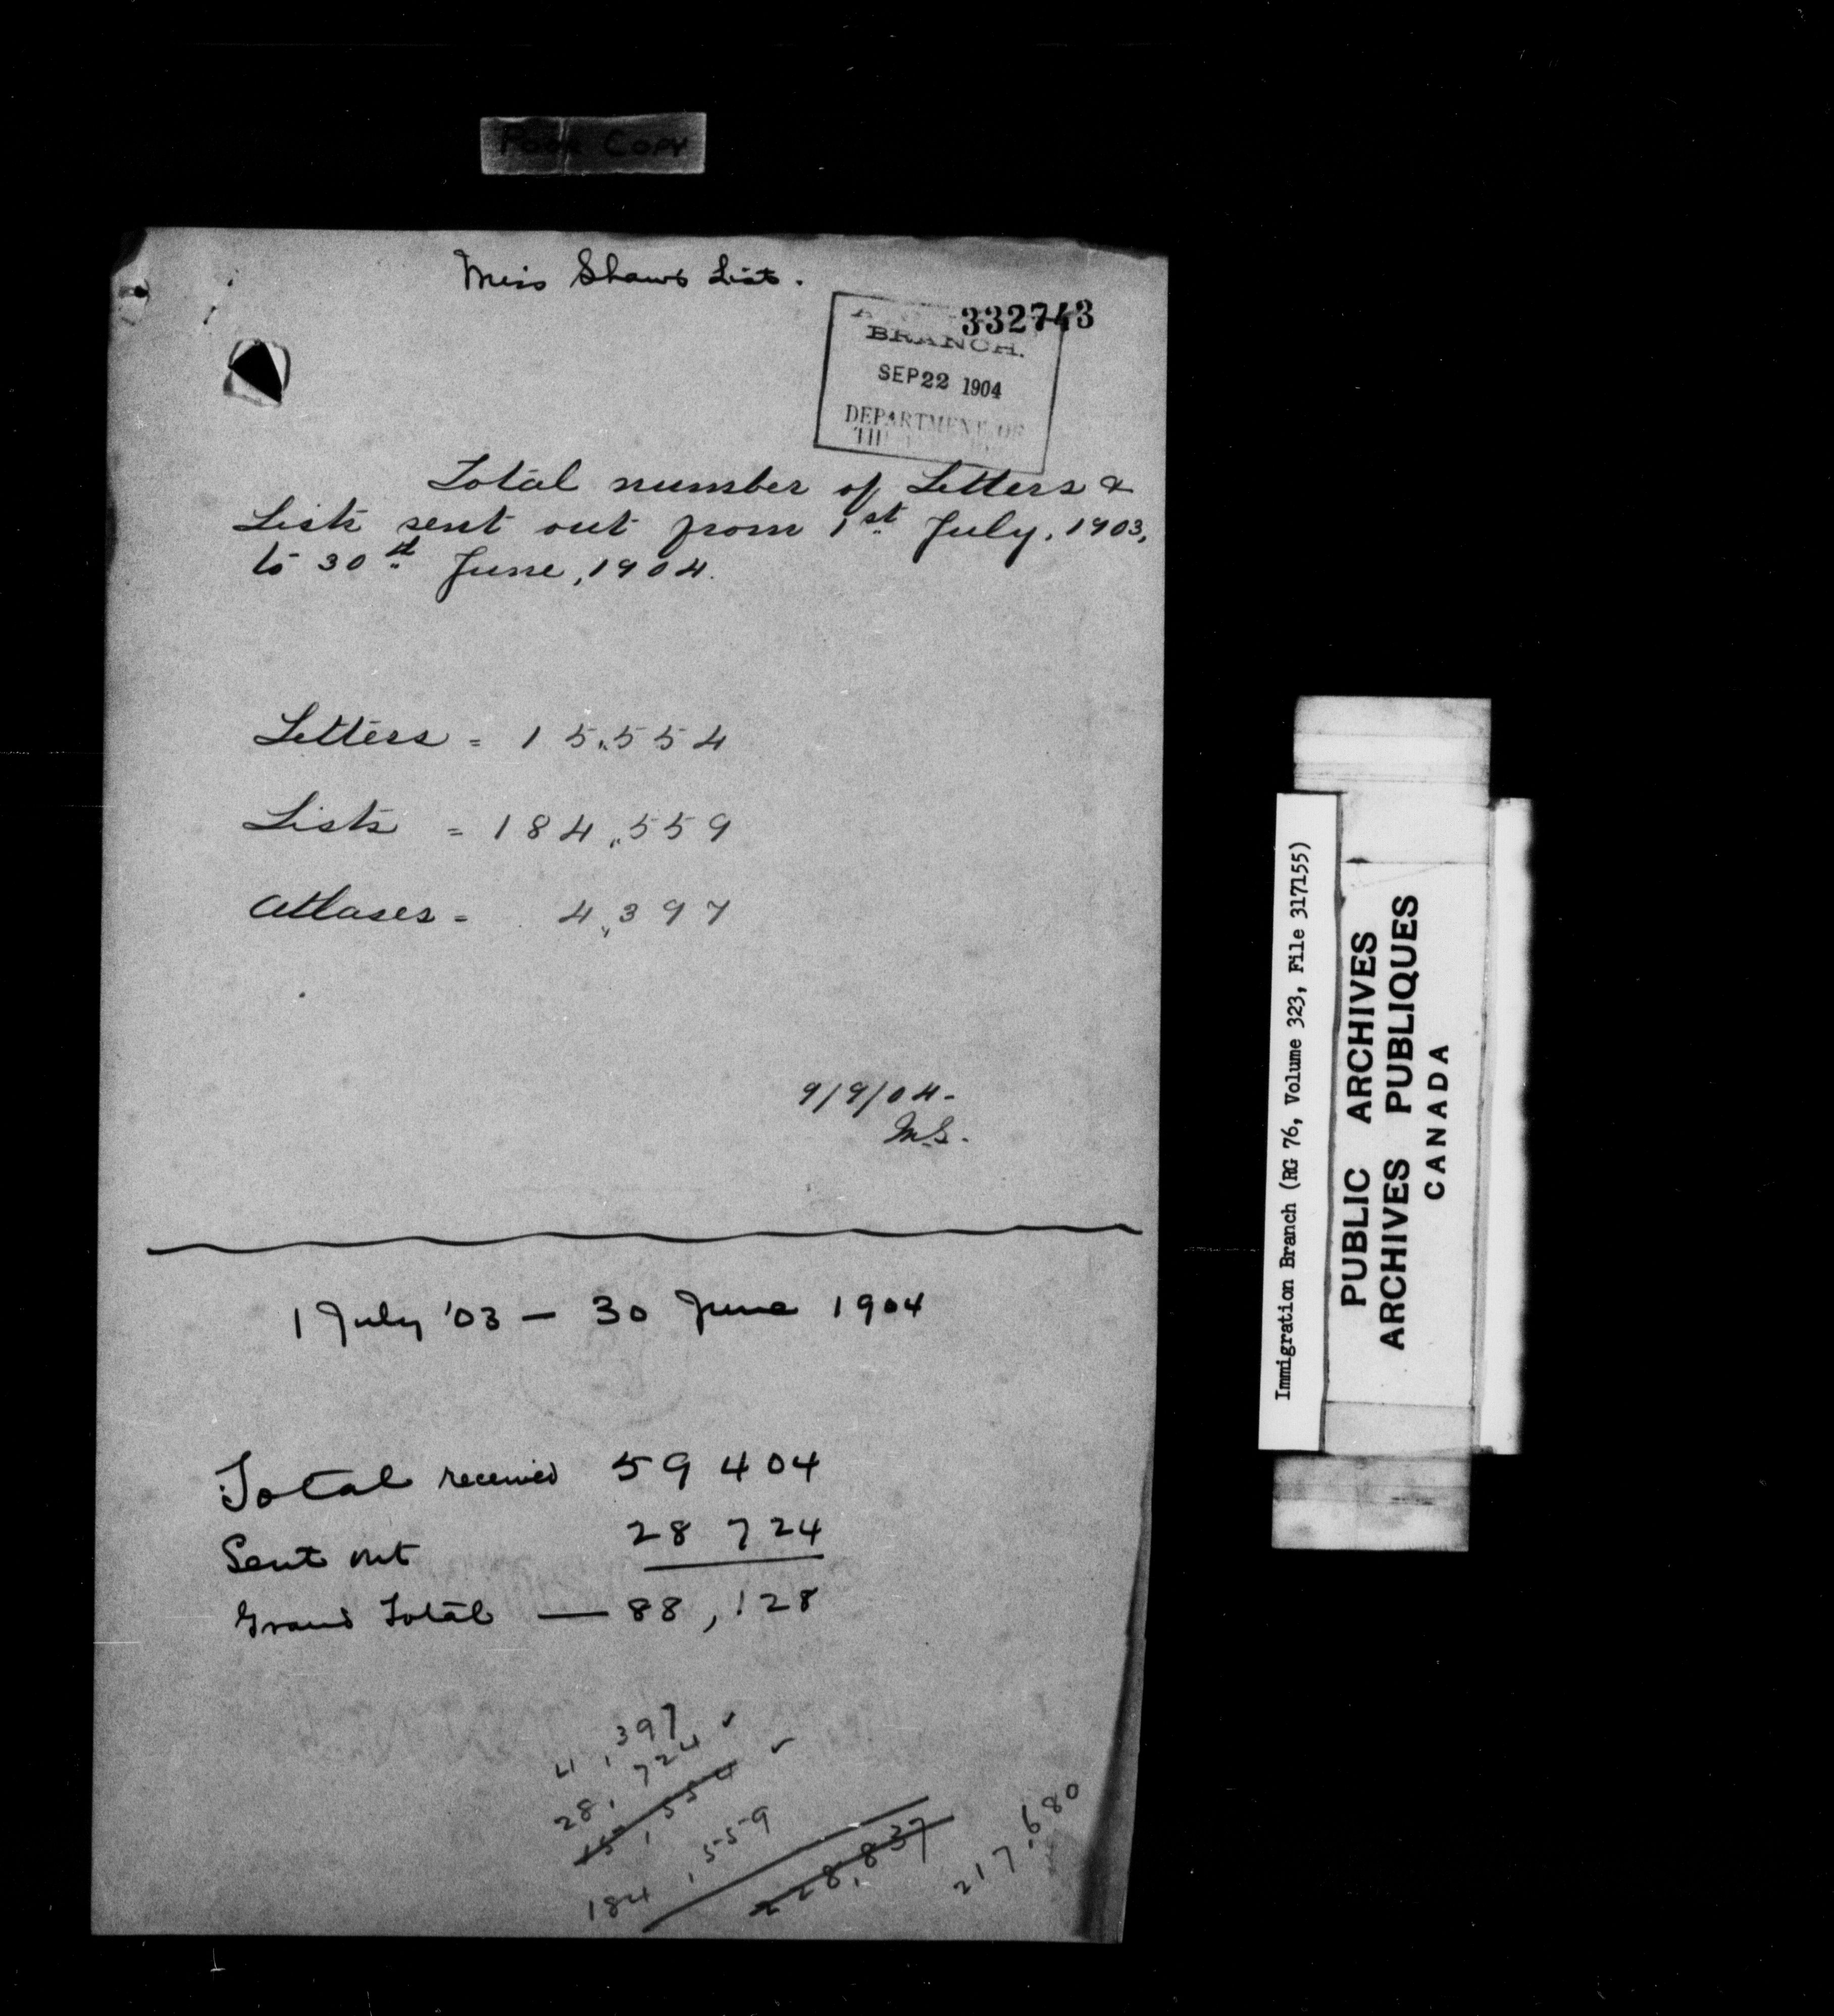 Poor Copy
Miss Shaws List.
332743
BRANCH.
SEP 22 1904
DEPARTMENT OF
Total number of Letters &
Lists sent out from 1st July, 1903,
to 30th June, 1904.
Letters = 15,554
Lists = 184,559
Atlases = 4,397
9/9/04-
M.S.
1 July '03 — 30 June 1904
Total received 59 404
Sent out 28 724
Grand Total — 88,128
4,397 ✓
28,724 ✓
15,554
184,559
228,837
217,680
Immigration Branch (RG 76, Volume 323, File 317155)
PUBLIC ARCHIVES
ARCHIVES PUBLIQUES
CANADA